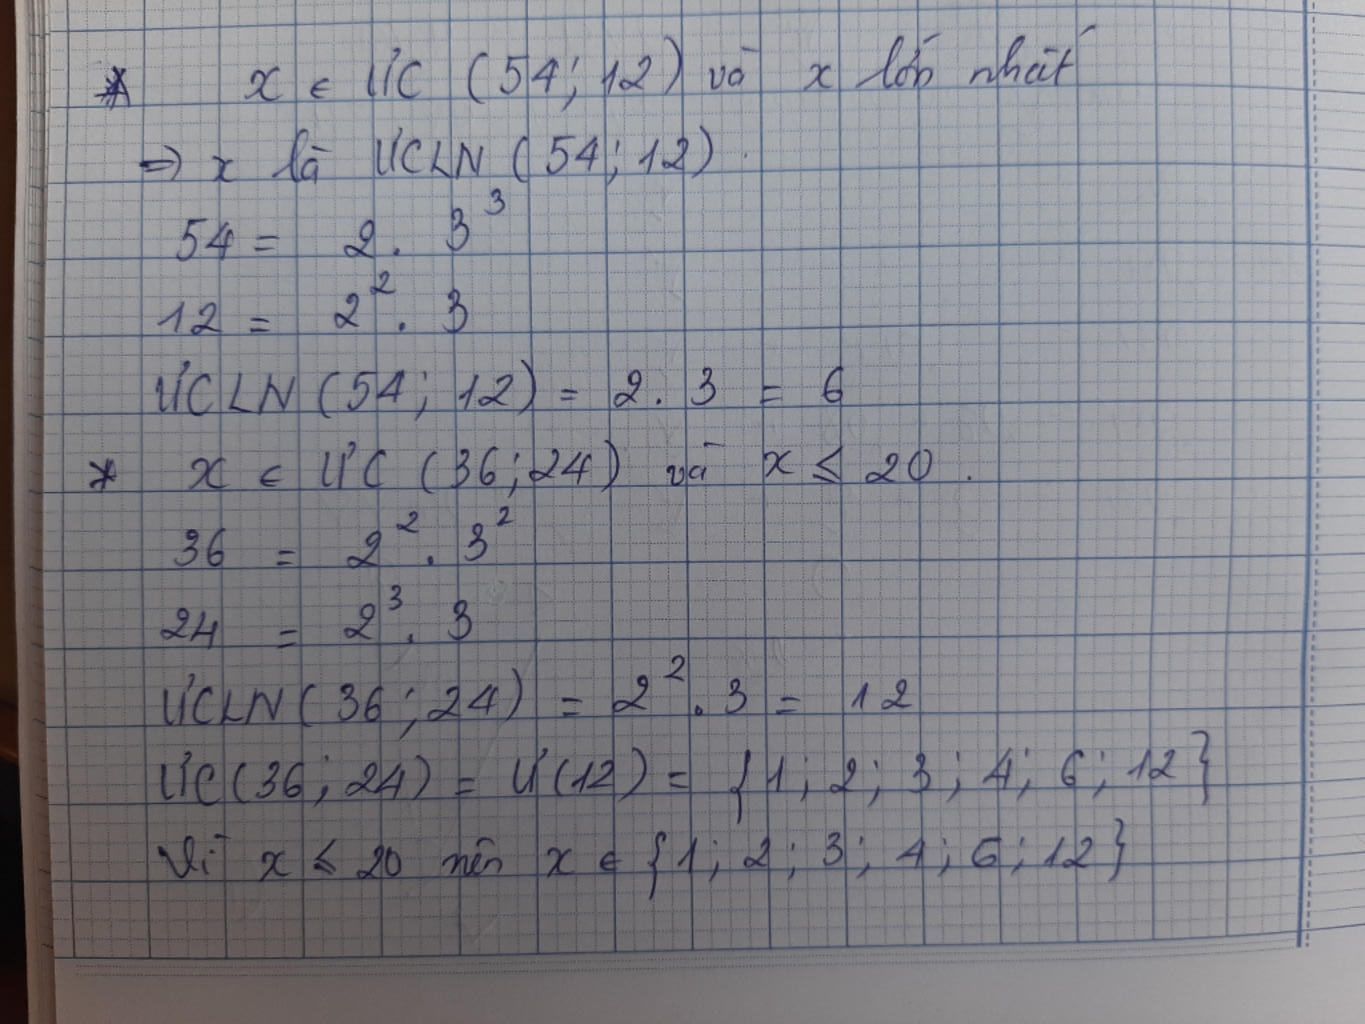 * x ∈ ƯC (54; 12) và x lớn nhất
⇒ x là ƯCLN (54; 12).
54 = 2. 3³
12 = 2². 3
ƯCLN (54; 12) = 2. 3 = 6
* x ∈ ƯC (36; 24) và x ≤ 20.
36 = 2². 3²
24 = 2³. 3
ƯCLN (36; 24) = 2². 3 = 12
ƯC (36; 24) = Ư(12) = {1; 2; 3; 4; 6; 12}
Vì x ≤ 20 nên x ∈ {1; 2; 3; 4; 6; 12}